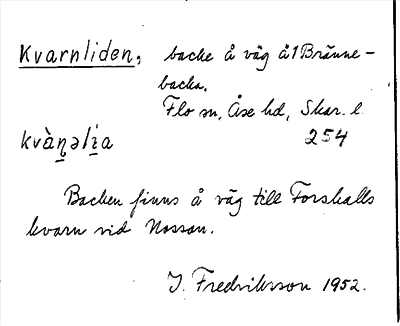 Kvarnliden, backe å väg å 1 Bränne-
backa.
Flo sn, Åse hd, Skar. l.
kvàṉəlí̱a 254
Backen finns å väg till Forshalls
kvarn vid Nossan.
I. Fredriksson 1952.